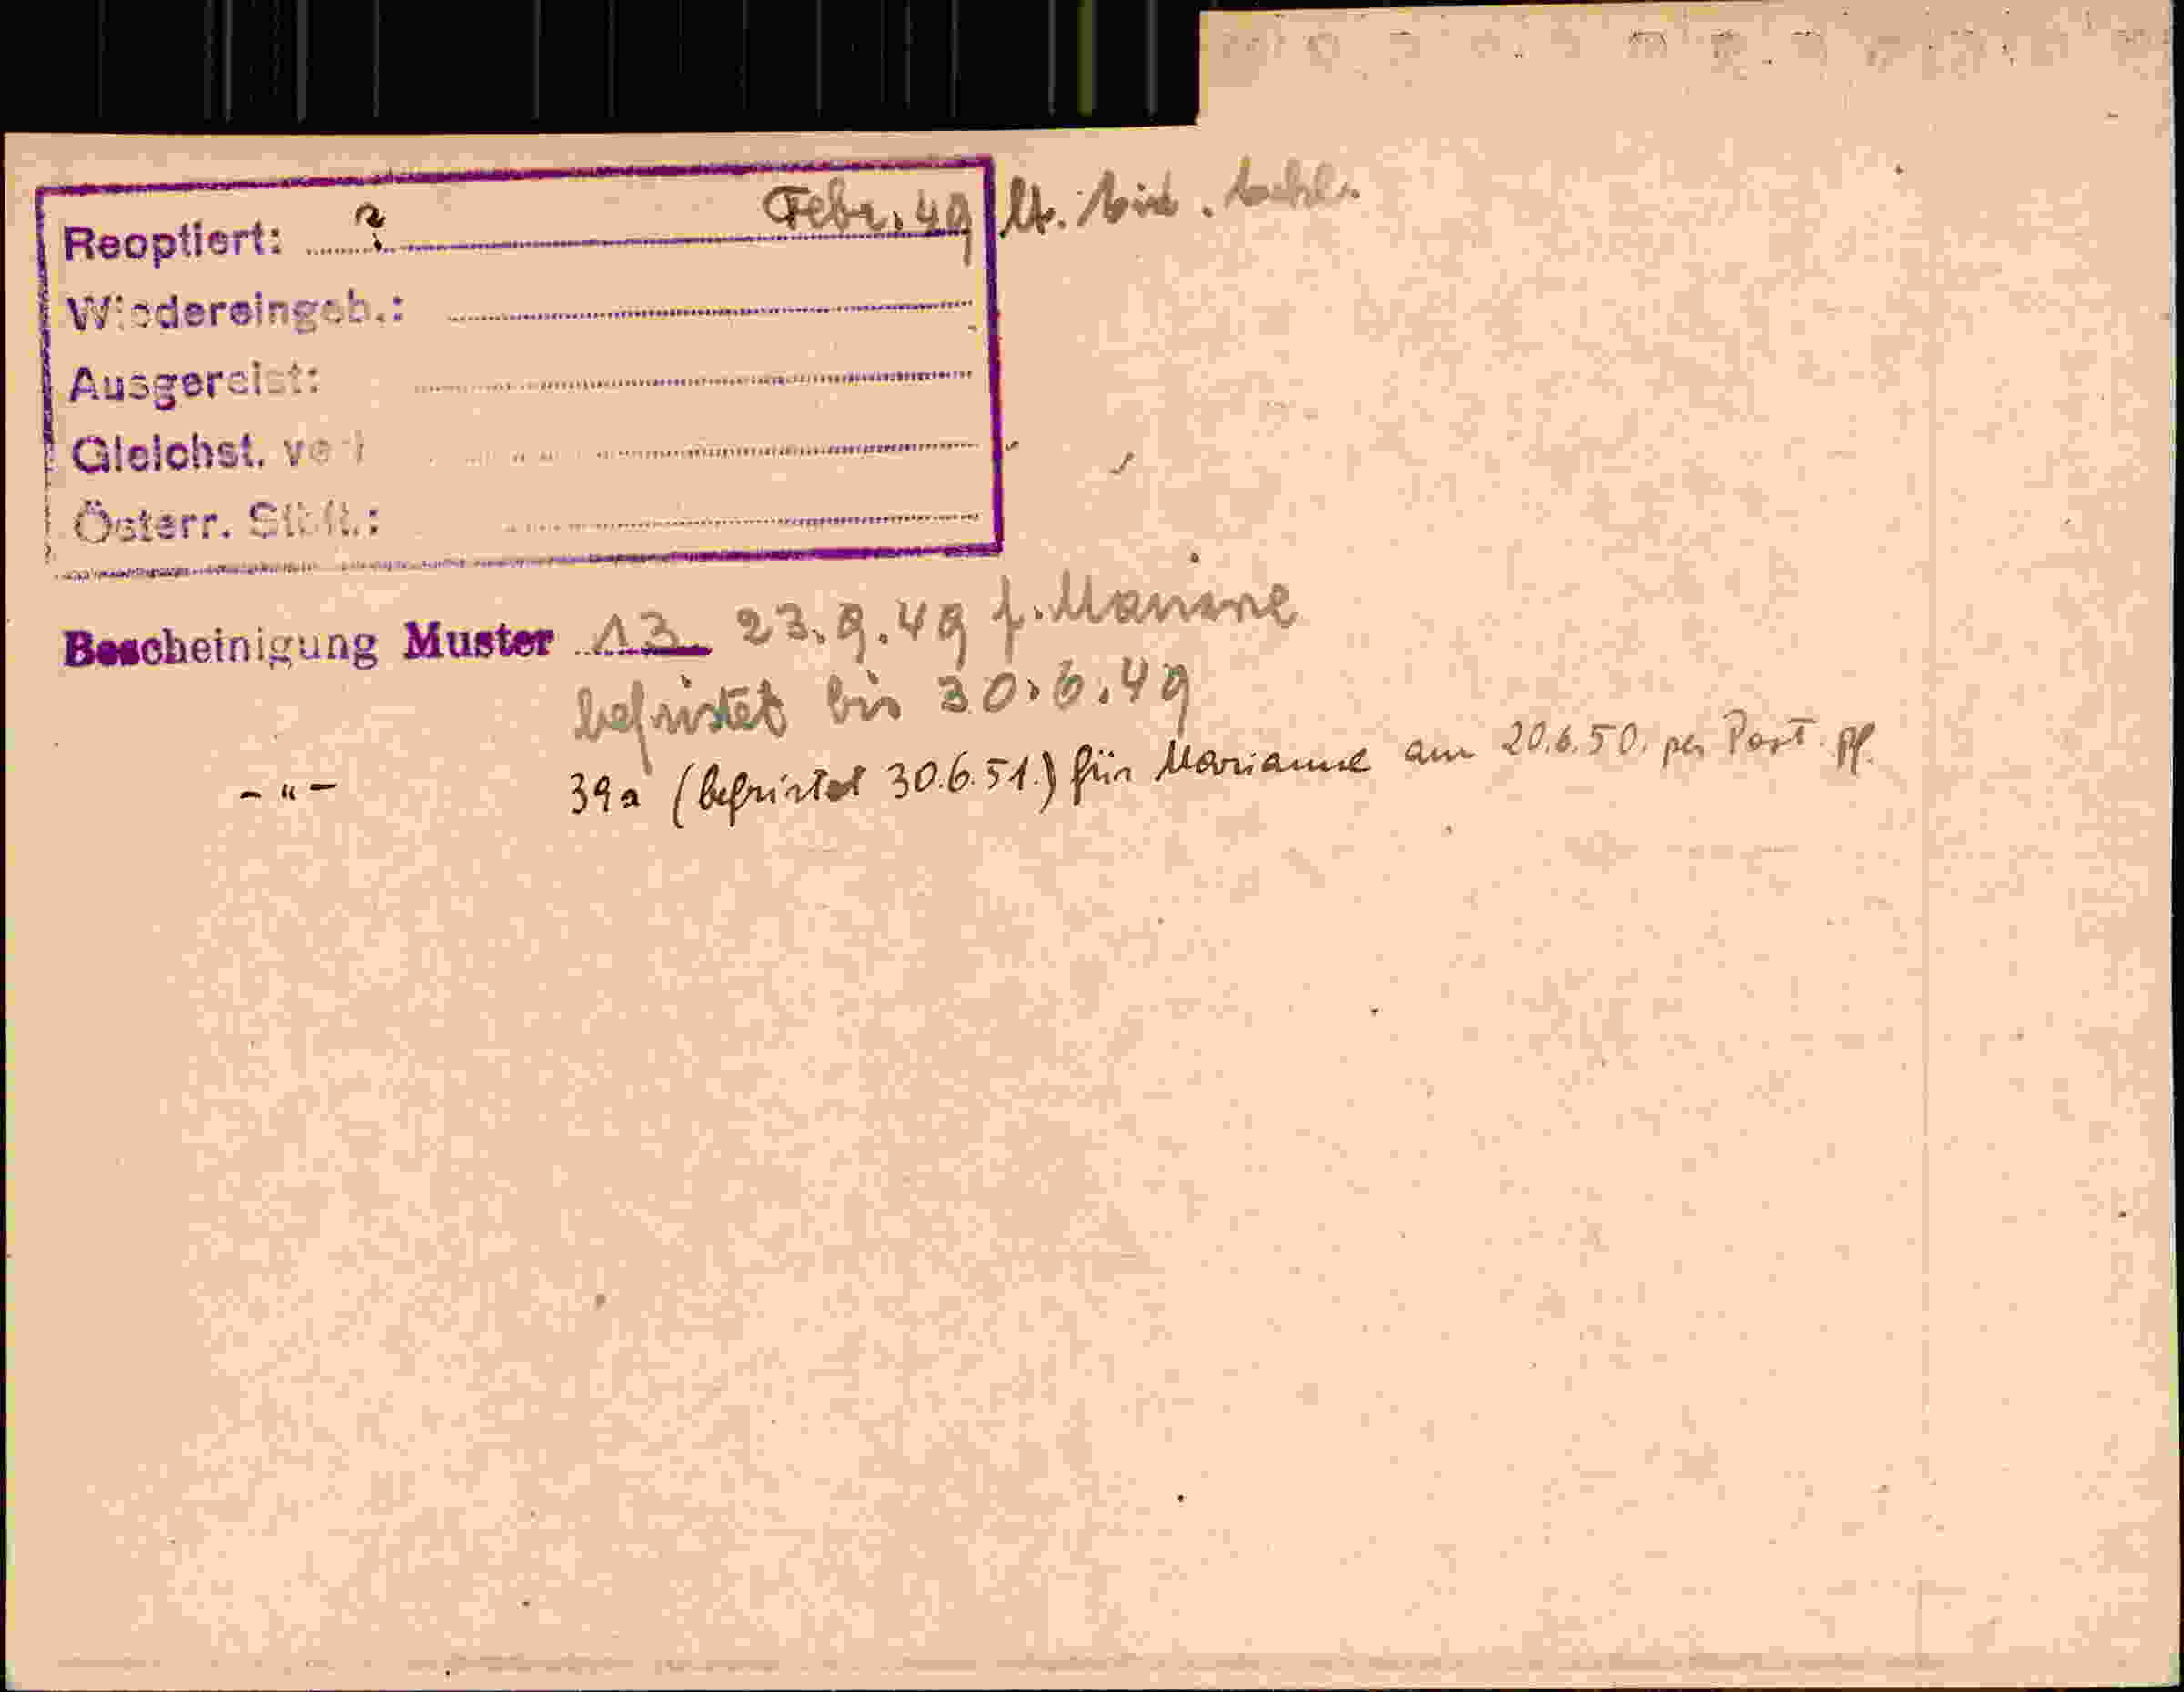 Reoptiert: ? Febr. 49 lt.
Wiedereingeb.:
Ausgereist:
Gleichst.
Österr.
Bescheinigung Muster 13 23.9.49 f. Marianne
befristet bis 30.6.49
-"- 39a (befristet 30.6.51.) für Marianne am 20.6.50. per Post.